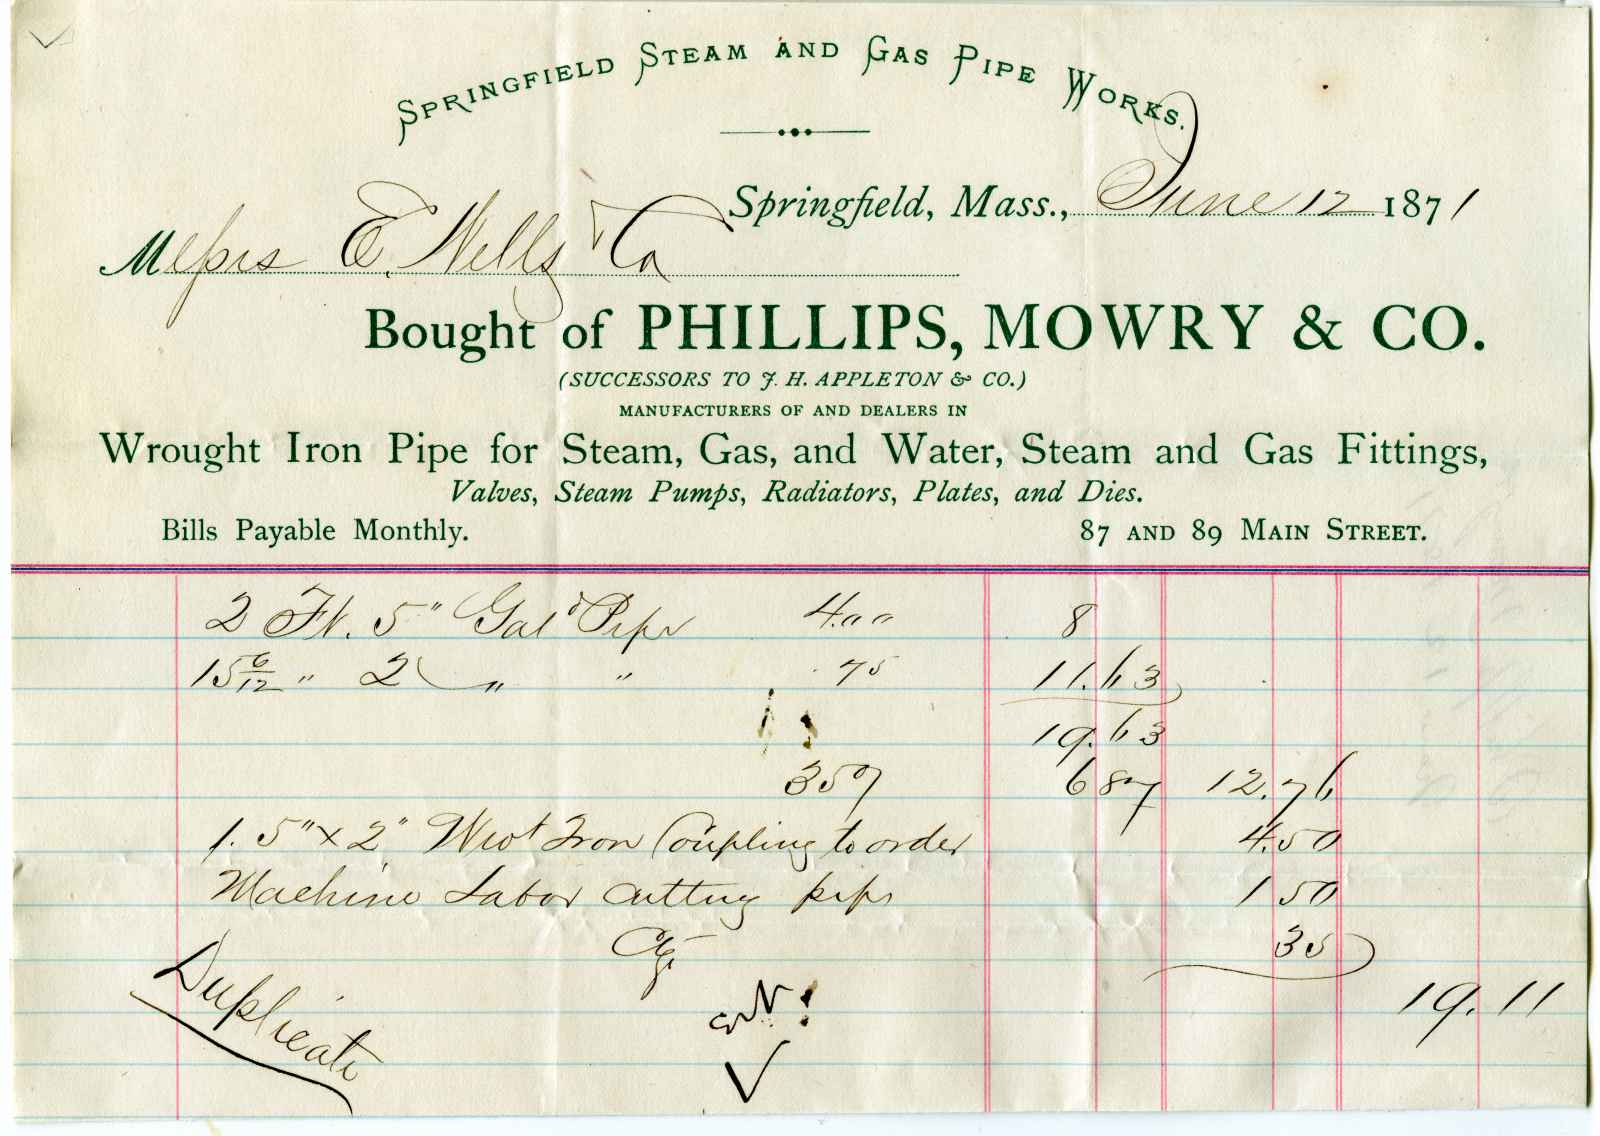 SPRINGFIELD STEAM AND GAS PIPE WORKS.
Springfield, Mass., June 12 1871
Messrs E. Wells & Co
Bought of PHILLIPS, MOWRY & CO.
(SUCCESSORS TO J. H. APPLETON & CO.)
MANUFACTURERS OF AND DEALERS IN
Wrought Iron Pipe for Steam, Gas, and Water, Steam and Gas Fittings,
Valves, Steam Pumps, Radiators, Plates, and Dies.
Bills Payable Monthly. 87 AND 89 MAIN STREET.
2 Ft. 5" Gal'd Pipe 4.00 8
15 6/12 " 2 " " .75 11.63
19.63
35% 6 87 12.76
1. 5" x 2" Wrot Iron Coupling to order 4.50
Machine Labor cutting pipe 1 50
35
19.11
Duplicate